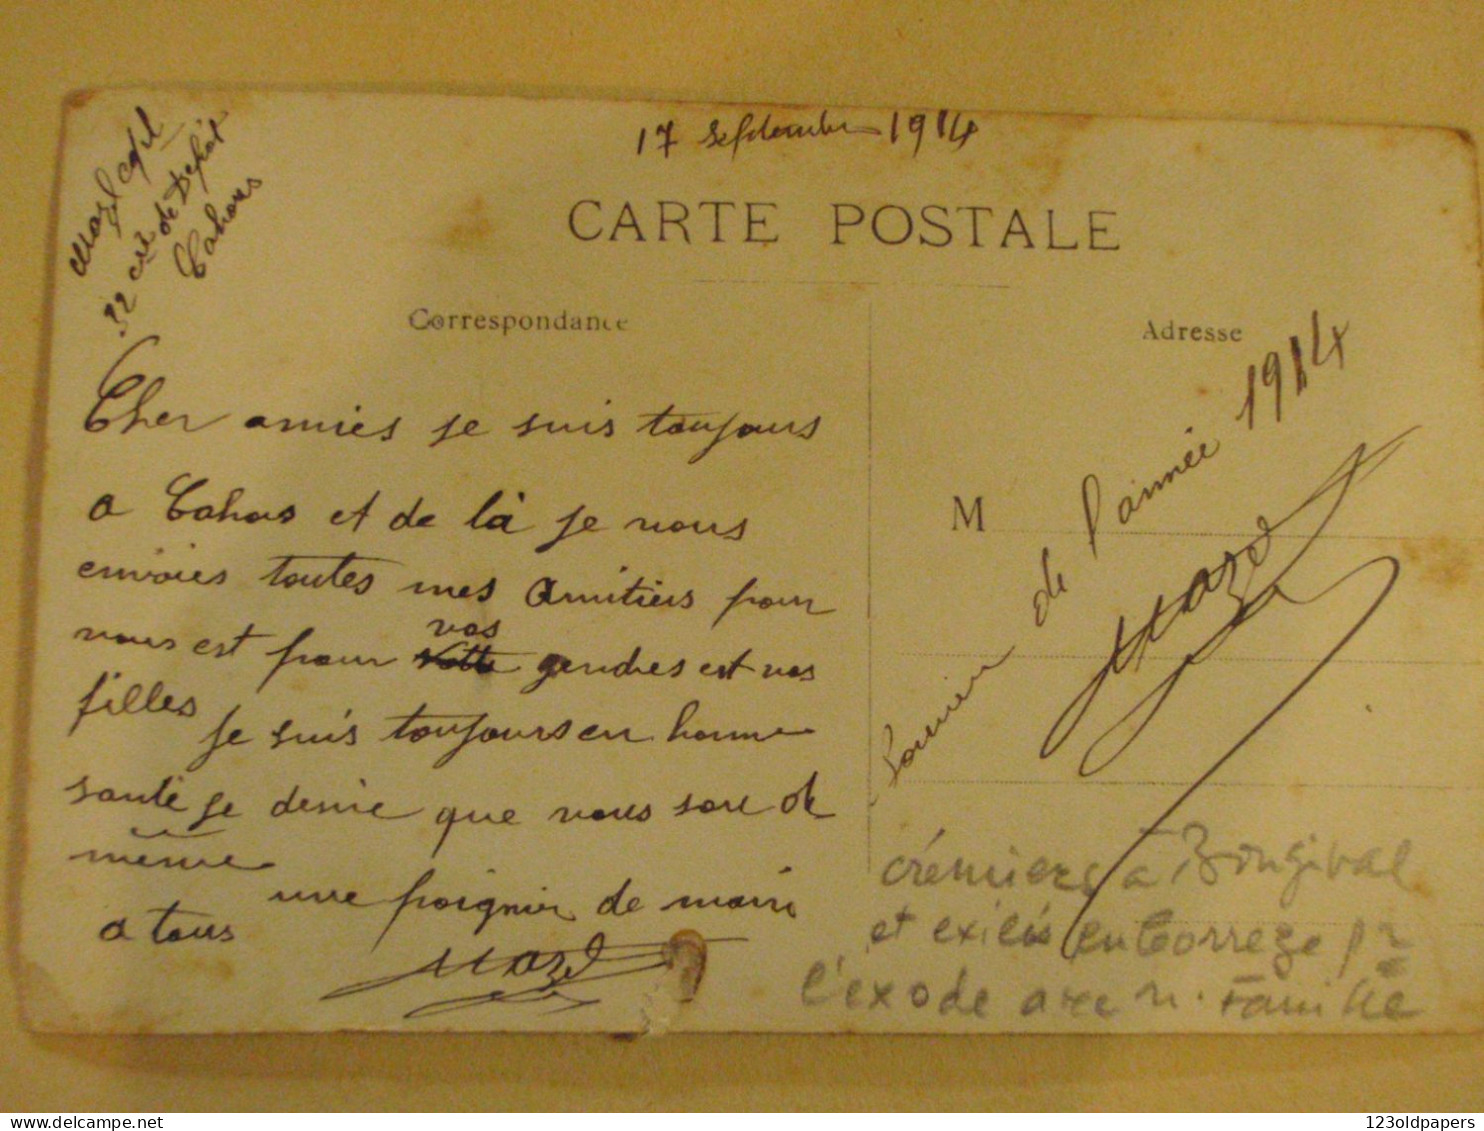 17 Septembre 1914
CARTE POSTALE
Mazel
de Depôt
Cahors
Correspondance
Cher amies je suis toujours
a Cahors et de là je vous
envoies toutes mes amitiers pour
vous est pour vos gendres est vos
filles
je suis toujours en bonne
santé je desire que vous soie de
même
une poignier de main
a tous
Mazel
Adresse
M
Souvenir de l'année 1914
Mazel
crémiers a Bougival
et exilés en Correze pr
l'exode avec n. Famille
123oldpapers
delcampe.net